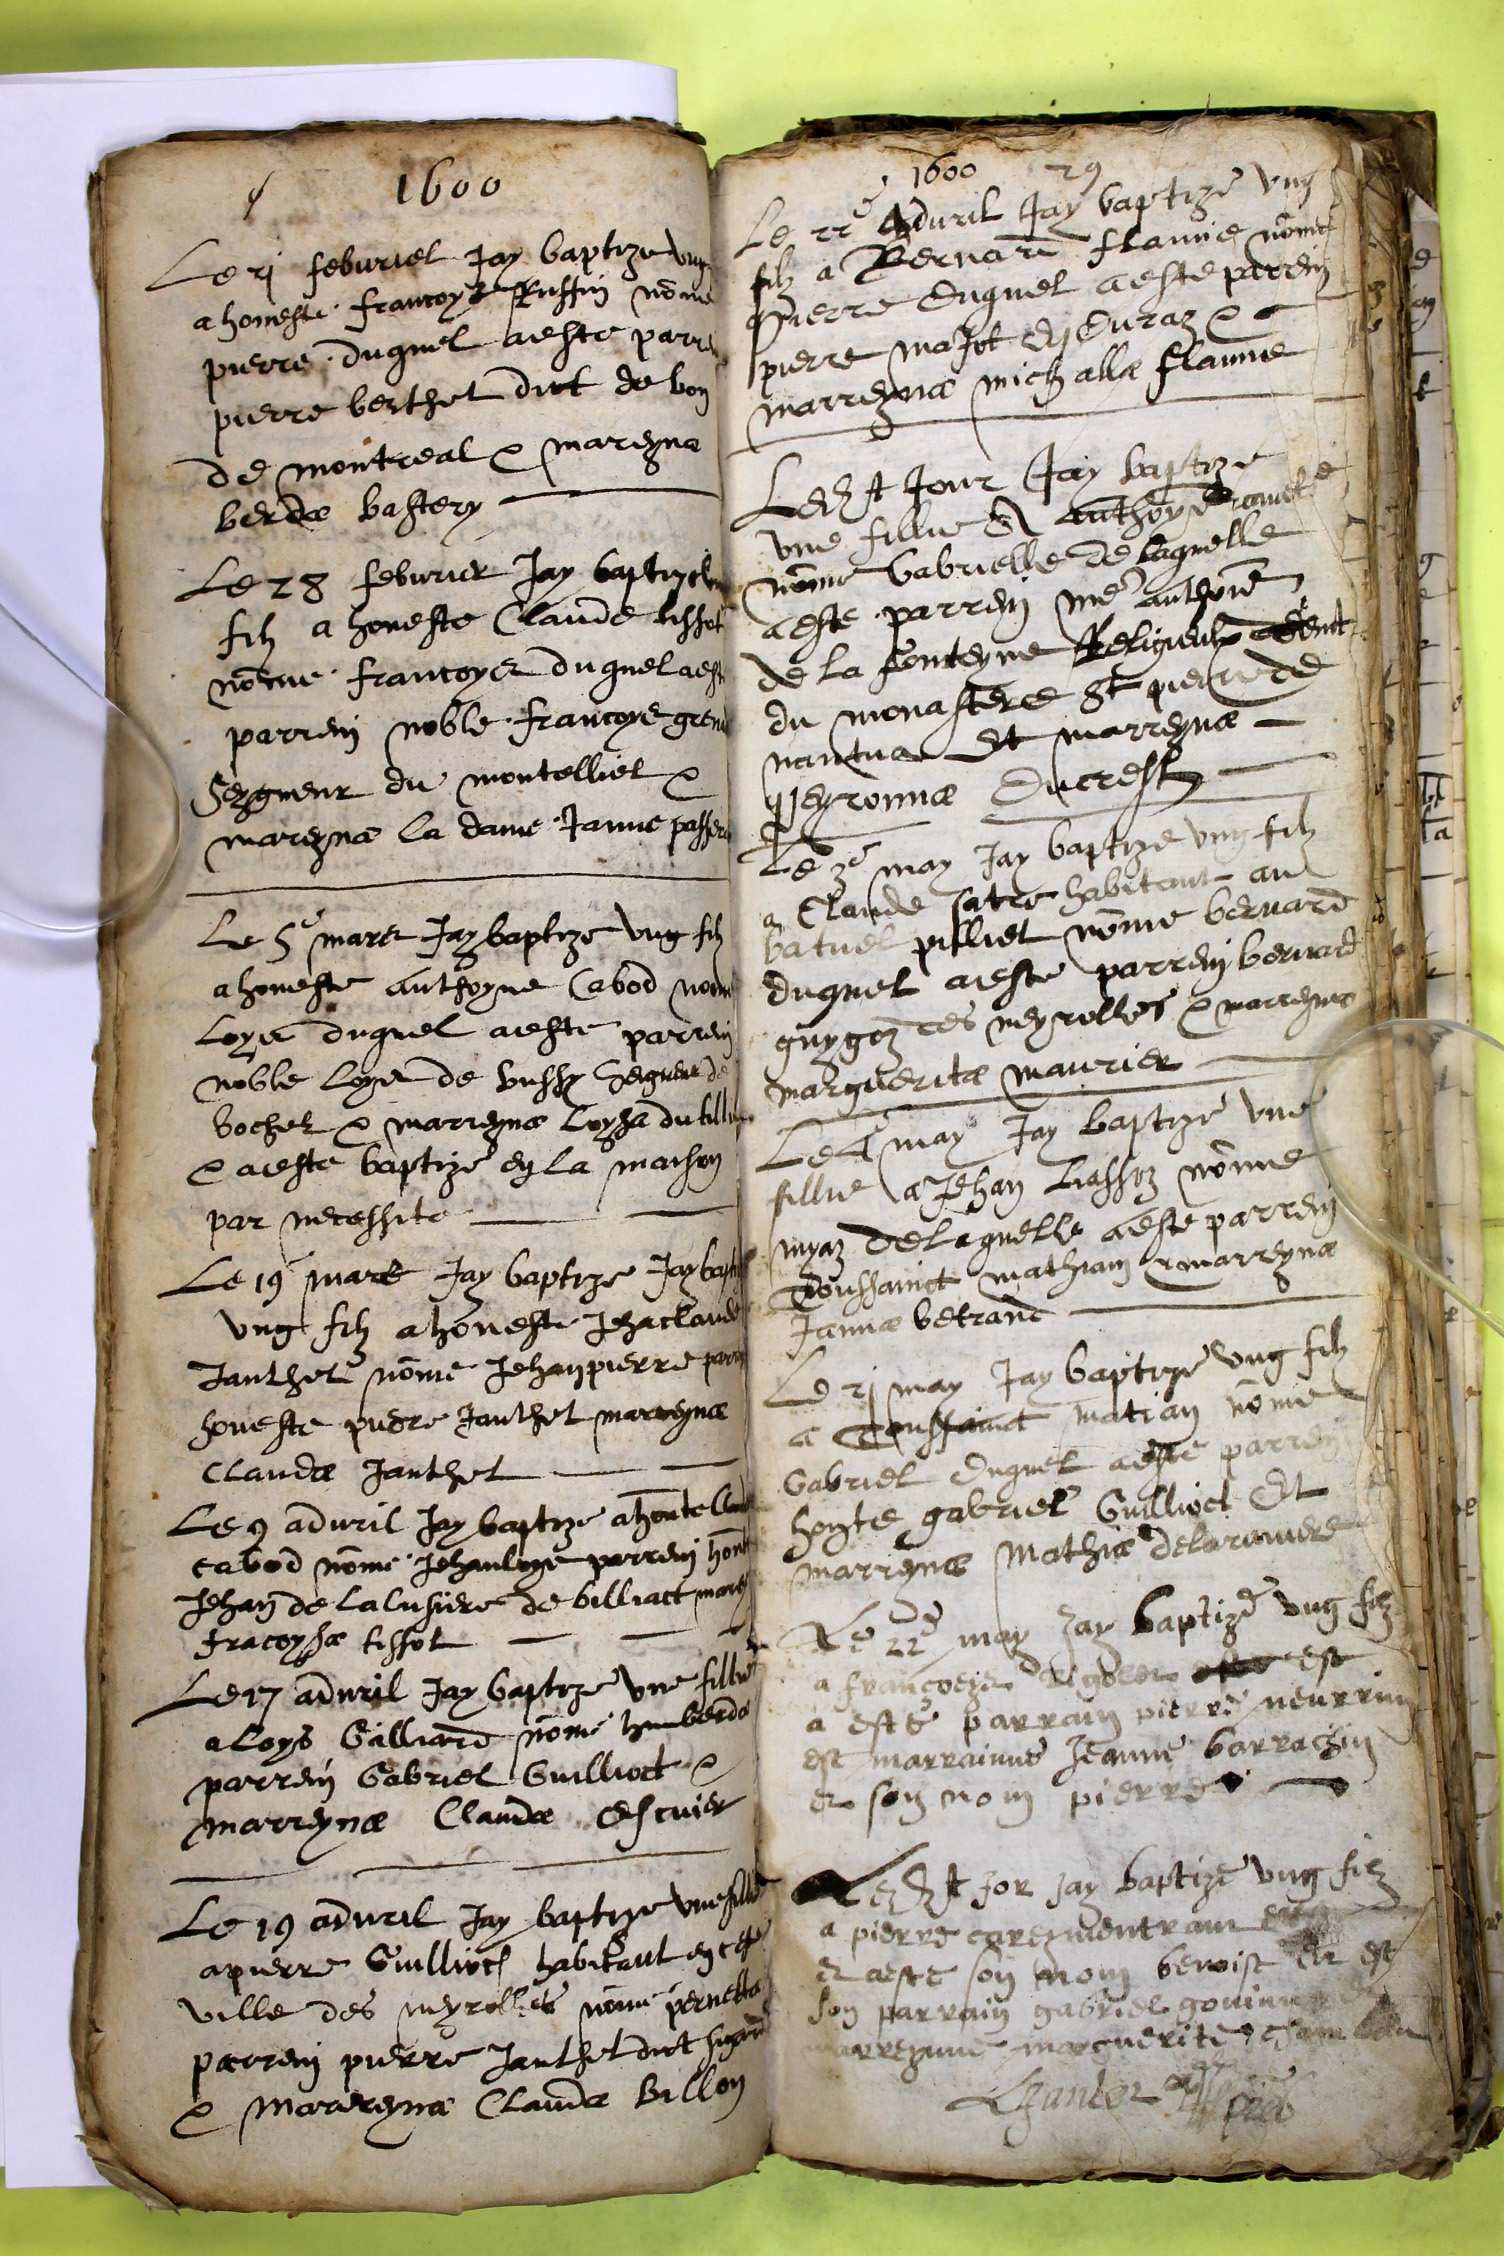 1600
Le 2j feburier Jay baptize ung
a honeste francoys Ruffin nõme
pierre duquel aeste parre
pierre berthet dict de bon
de montreal & mareyna
berda bastery
Le 28 feburier Jay baptize
filz a honeste Claude tissot
nõme francoys duquel aest
parrein noble francoys gren
Seygneur du montelliet &
mareyna la dame Janne passer
Le 5e mars Jay baptize ung filz
a honeste anthoyne Cabod nome
Loys duquel aeste parrein
noble Loys de bussy Seigneur de
bochet & marreyna Loysa du till
& aeste baptize en la maison
par necessite
Le 19 mars Jay baptize Jay bapt
ung filz a honeste Jhaclaude
Janthet nõme Jehanpierre parre
honeste pierre Janthet marreyna
Clauda Janthet
Le 9 advril Jay baptize a honte Claud
cabod nõme Jehanloys parrein hon
Jehan de la lusiere de billiact mare
fracoysa tissot
Le 17 advril Jay baptize une fillie
a Loys Galliard nõme humberda
parrein Gabriel Guilliect &
marreyna Clauda Escuier
Le 19 advril Jay baptize une fillie
a pierre Guilliect habitant en ceste
ville des neyrolles nõme pernetta
parrein pierre Janthet dict
& marreyna Clauda Billon
1600 29
Le 22e Advril Jay baptize ung
filz a Bernard flamie nõme
pierre duquel aeste parrein
pierre majot &
marreyna michalla flamie
Led st Jour Jay baptize
une fillie a anthoyne
nõme Gabrielle de laquelle
aeste parrein mre anthoine
de la fonteyne Religieulx
du monastere St pierre de
nantua Et marreyna
peyronna Ducrest
Le 3e may Jay baptize ung filz
a Claude satre habitant au
batuel pilliet nõme bernard
duquel aeste parrein bernard
guygoz des neyrolles & marreyna
marguerita maurier
Le 4e may Jay baptize une
fillie a Jehan Liassoz nõme
myaz de laquelle aeste parrein
Toussainct mathian & marreyna
Janna betrand
Le 2j may Jay baptize ung filz
a Toussainct matian nõme
Gabriel duquel aeste parrein
honste gabriel Guilliect Et
marreyna Mathia delarouiere
Le 22e may Jay baptize ung filz
a francoys est
a este parrain pierre neurrin
est marrainne Jeanne barrachin
et son nom pierre
Led st Jor Jay baptize ung filz
a pierre caresmentrant
et aeste son nom benoist et est
son parrain gabriel
marreynne marguerite